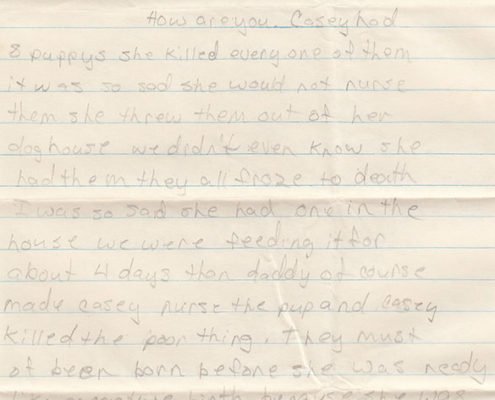 How are you. Casey had
8 puppys she killed every one of them
it was so sad she would not nurse
them she threw them out of her
doghouse we didn't even know she
had them they all froze to death
I was so sad she had one in the
house we were feeding it for
about 4 days then daddy of course
made casey nurse the pup and casey
killed the poor thing. They must
of been born before she was ready
birth because she was